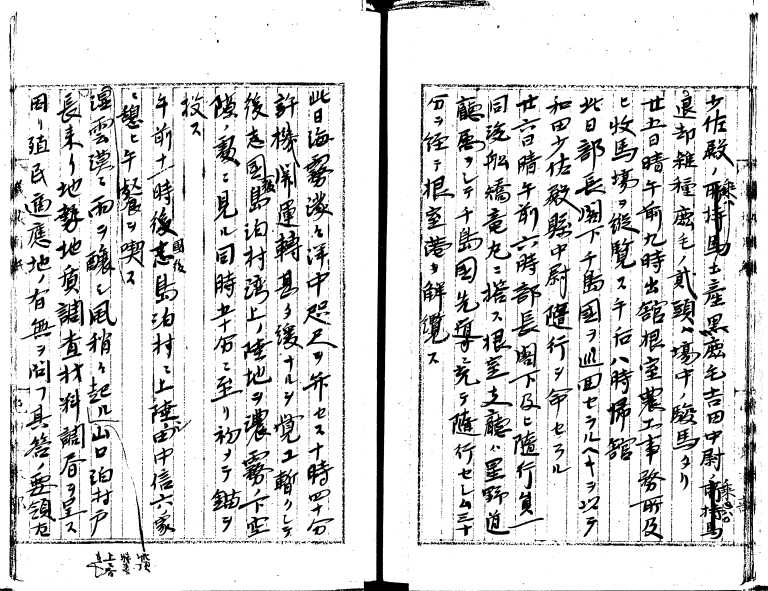 少佐殿ノ乗馬土産黒鹿毛吉田中尉ノ乗馬
退却雑種鹿毛ノ貳頭ハ場中ノ駿馬タリ
廿五日晴午前九時出舘根室農工事務所及
ヒ牧馬場ヲ縦覧ス午后八時帰舘
此日部長閣下千島國ヲ巡回セラルヘキヲ以テ
和田少佐殿縣中尉隨行ヲ命セラル
廿六日晴午前六時部長閣下及ヒ隨行員一
同汽船矯竜丸ニ搭ス根室支廳ハ星野道
廳属ヲシテ千島國先導ニ充テ隨行セシム三十
分ヲ経テ根室港ヲ解纜ス
此日海霧濛々洋中咫尺ヲ弁セス十時四十分
許機関運轉甚タ緩ナルヲ覚ユ暫クシテ
後志國島泊村湾上ノ陸地ヲ濃霧ノ下空
隙ノ處ニ見ル同時五十分ニ至リ初メテ錨ヲ
投ス
午前十一時後志島泊村ニ上陸田中信六ノ家
國後
ニ憩ヒ午餐ヲ喫ス
湿雲漠々雨ヲ醸シ風稍々起ル山口泊村戸
長来リ地勢地質調査材料調書ヲ呈ス
因リ殖民適應地ノ有無ヲ問フ其答ノ要領左